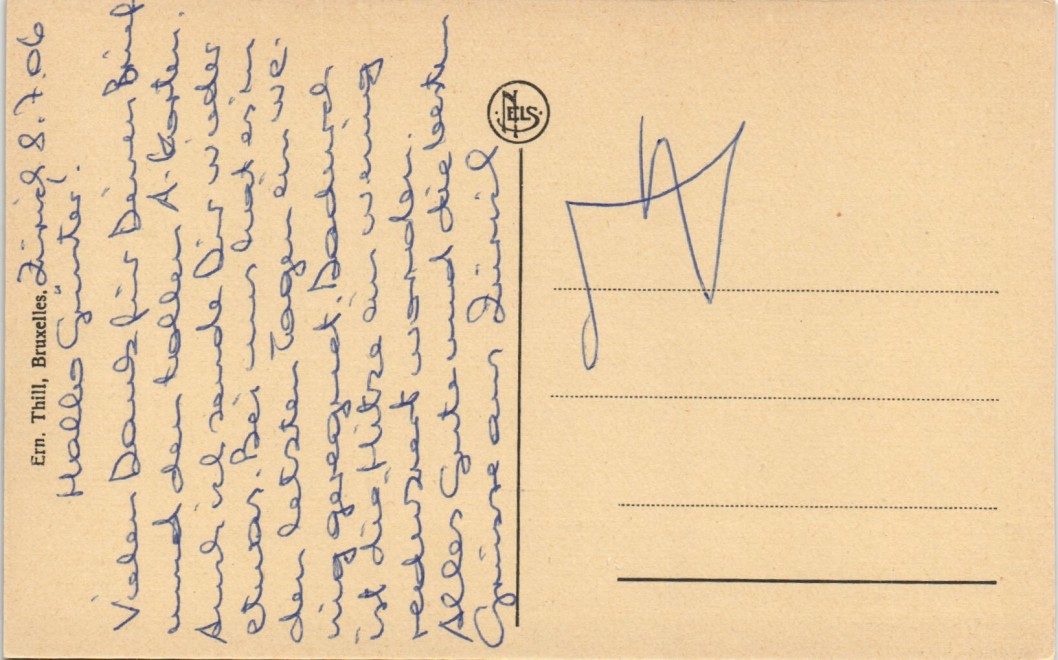 Zürich 8.7.06
Hallo Günter.
Vielen Dank für Deinen Brief
und den tollen A. Karten.
Auch ich sende Dir wieder
etwas. Bei uns hat es in
den letsten Tagen ein we-
nig geregnet. Dadurch
ist die Hitze ein wenig
reduziert worden.
Alles Gute und die besten
Grüsse aus Zürich
Ern. Thill, Bruxelles.
NELS